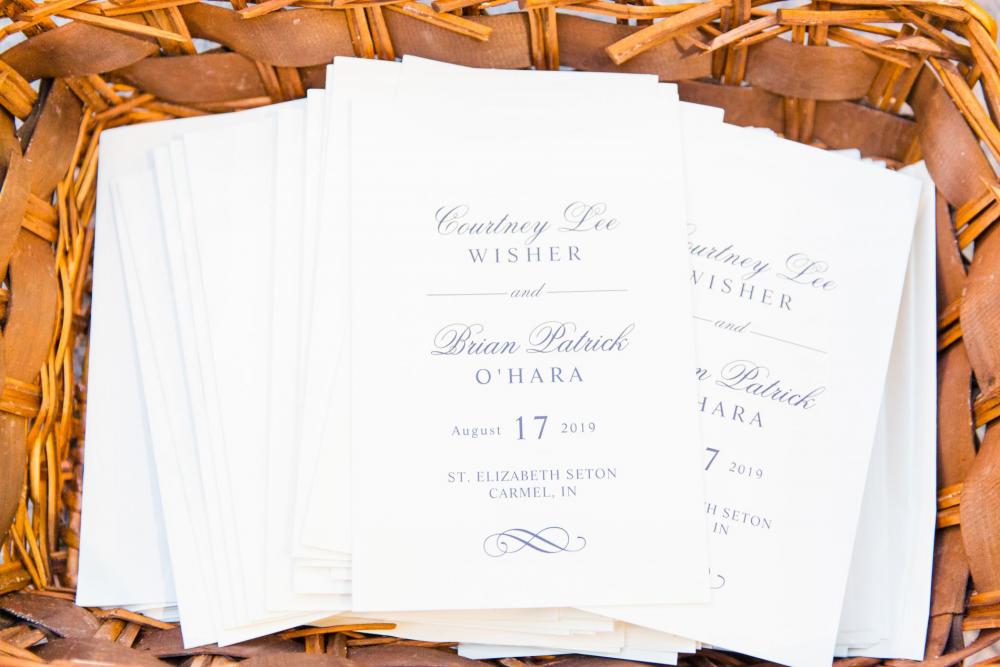 Courtney Lee
WISHER
and
Brian Patrick
O'HARA
August 17 2019
ST. ELIZABETH SETON
CARMEL, IN
Courtney Lee
WISHER
and
Patrick
O'HARA
7 2019
IN